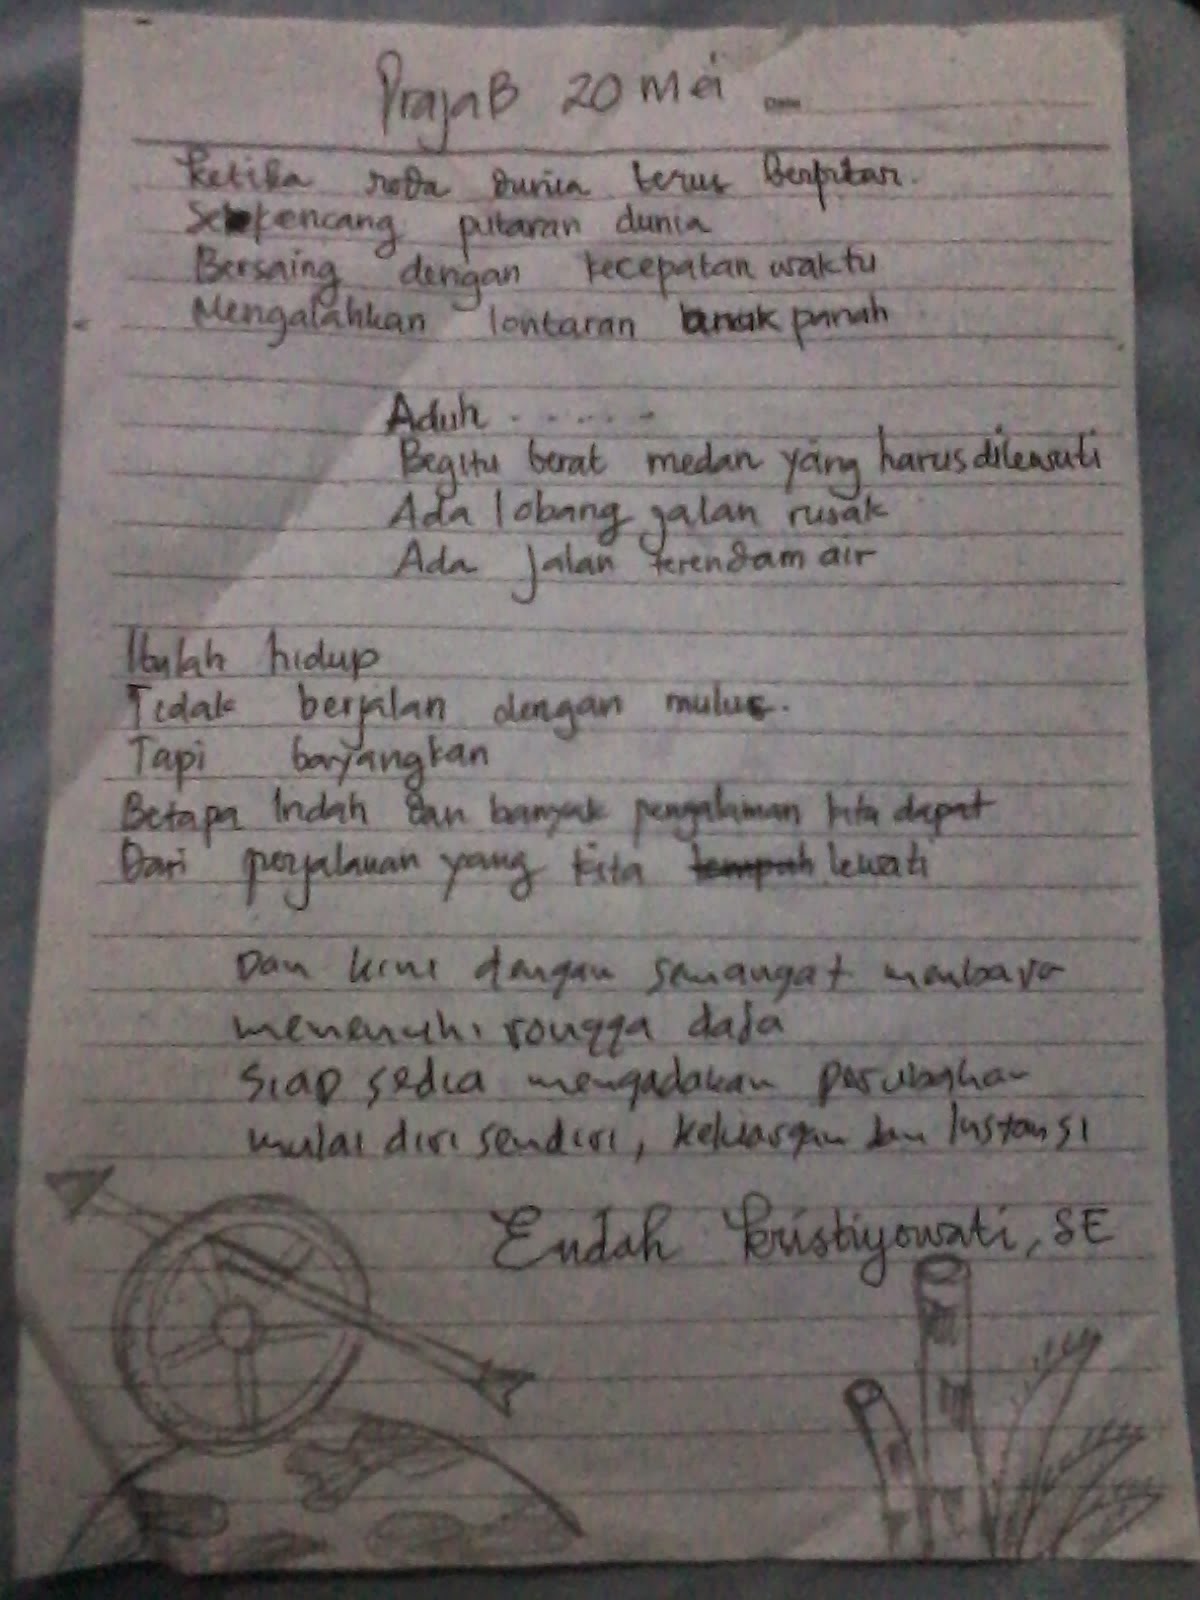 PrajaB 20 Mei
Date
Ketika roda dunia terus berputar.
Sekencang putaran dunia
Bersaing dengan kecepatan waktu
Mengalahkan lontaran anak panah
Aduh . . . . . .
Begitu berat medan yang harus dilewati
Ada lobang jalan rusak
Ada jalan terendam air
Itulah hidup
Tidak berjalan dengan mulus.
Tapi bayangkan
Betapa Indah dan banyak pengalaman kita dapat
Dari perjalanan yang kita lewati
Dan kini dengan semangat membara
memenuhi rongga dada
Siap sedia mengadakan perubahan
mulai diri sendiri, keluargan dan Instansi
Endah Kristiyowati, SE